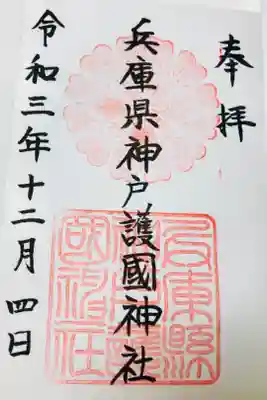 奉拝
兵庫県神戸護國神社
令和三年十二月四日
兵庫縣神戸護國神社